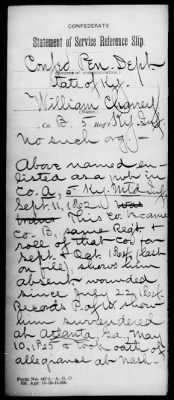 CONFEDERATE
Statement of Service Reference Slip.
Confed Pen. Dept
State of Ky.
William Chaney
Co. B, 5 Reg't Ky. Inf.
No such org-
Above named en-
listed as a pvt in
Co. A, 5 Ky. Mtd Inf
Sept. 11, 1862. was
This Co. became
Co. B, same Regt &
roll of that Co. for
Sept & Oct 1864 (last
on file) shows him
absent - wounded
since July 22, 1864.
Records Pay to show
him surrendered
at Atlanta Ga. May
10, 1865 & took oath of
allegiance at Nash-
Form No. A. G. O.